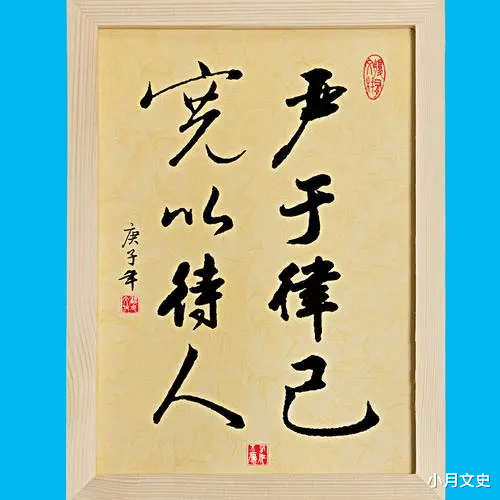 严于律己
宽以待人
庚子年
小月文史